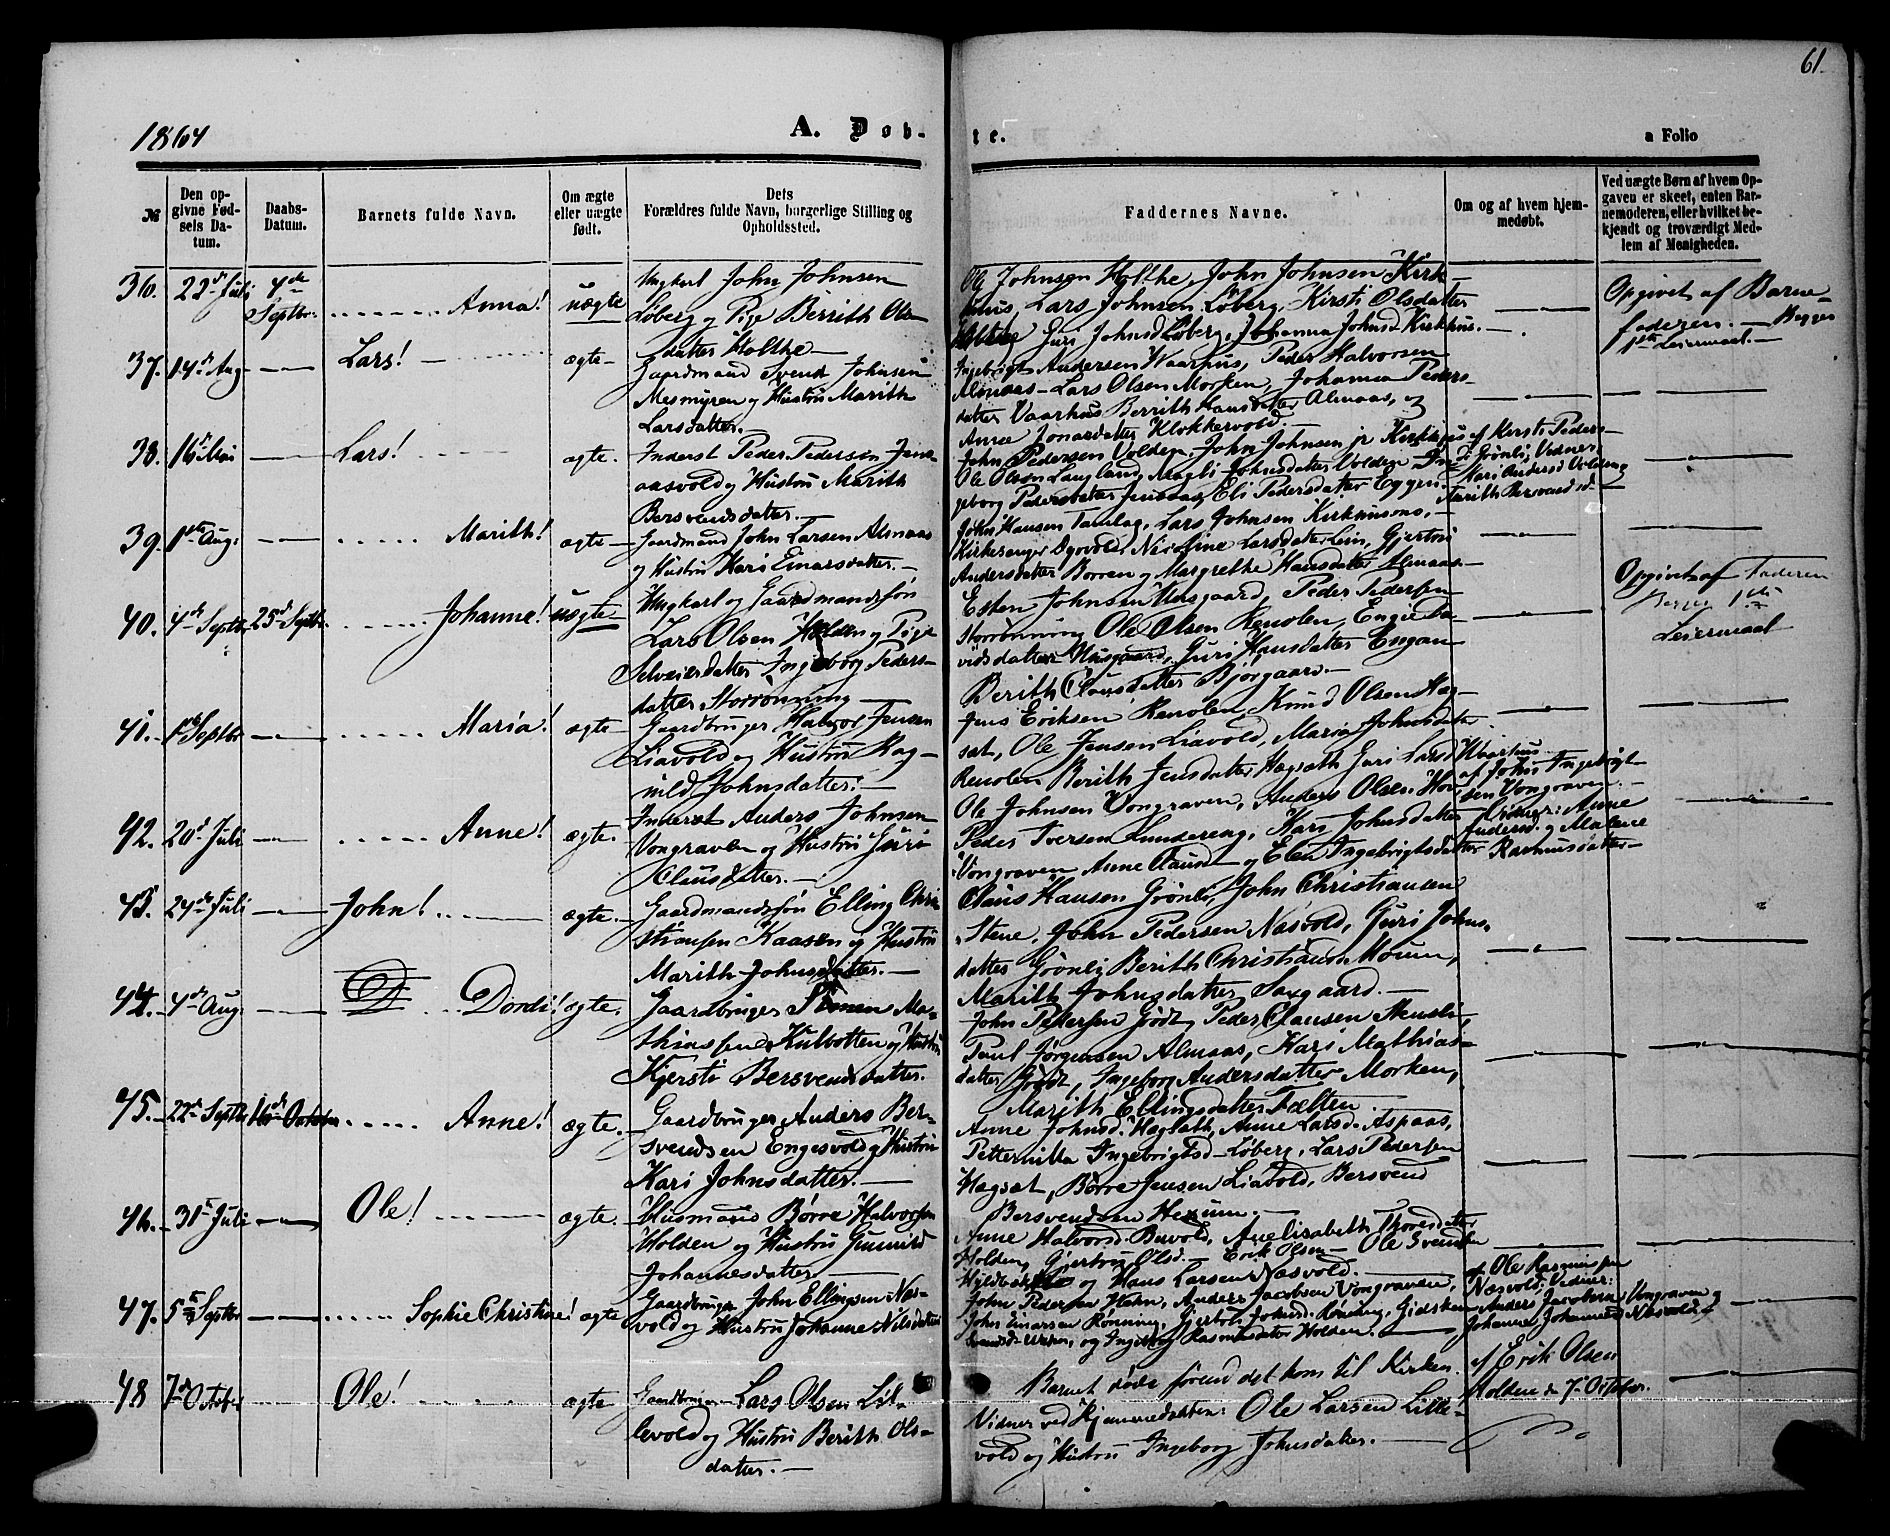 61.
1864
A. Døb-
te.
a Folio
№
Den op-
givne Fød-
sels Da-
tum.
Daabs-
Datum.
Barnets fulde Navn.
Om ægte
eller uægte
født.
Dets
Forældres fulde Navn, borgerlige Stilling og
Opholdssted.
Faddernes Navne.
Om og af hvem hjem-
medøbt.
Ved uægte Børn af hvem Op-
gaven er skeet, enten Bar-
nemoderen, eller hvilket be-
kjendt og troværdigt Med-
lem af Menigheden.
36. 22d Juli 4de Septbr. Anna! uægte
Ungkarl John Johnsen
Løberg og Pige Berrith Ols
datter Holthe
Ole Johnsen Holthe, John Johnsen Kirk-
huus, Lars Johnsen Løberg, Kirsti Olsdatter
Holthe Guri Johnsd Løberg, Johanna Johnsd Kirkhus.
Opgivet af Barne-
faderen. — Begges
1ste Leiermaal.
37. 14d Aug. Lars! ægte
Gaardmand Svend Johnsen
Mesmyren og Hustru Marith
Larsdatter.
Ingebrigt Andersen Vaarhus, Peder Halvorsen
Almaas - Lars Olsen Morken, Johanna Peders-
datter Vaarhus Berrith Hansdatter Almaas, og
Anne Jonasdatter Klokkervold.
38. 16d Mai Lars! ægte.
Inderst Peder Pedersen Jens-
aasvold og Hustru Marith
Bersvendsdatter.
John Pedersen Volden, John Johnsen jr Kirkhus
Ole Olsen Langland, Magli Johnsdatter Volden In-
geborg Pedersdatter Jensaas, Eli Pedersdatter Eggen.
af Kersti Peders-
d. Grønli, Vidner
Mari Andersd Volden og
Marith Bersvendsd.
39. 1ste Aug. Marith! ægte
Gaardmand John Larsen Almaas
og Hustru Kari Einarsdatter.
John Hansen Tamlag, Lars Johnsen Kirkhusmo,
Kirkesanger Dyvold, Nicoline Larsdatter Lein, Gjertru
Andersdatter Borren og Margrethe Hansdatter Almaas.
40. 4de Septbr. 25d Septbr. Johanne! uægte
Ungkarl og Gaardmandssøn
Lars Olsen Holden og Pige
Selveierdatter Ingeborg Peders-
datter Storrønning
Esten Johnsen Husgaard, Peder Pedersen
Storrønning Ole Olsen Renolen, Engie Da-
vidsdatter Husgaard, Guri Hansdatter Engan
Berith Clausdatter Bjørgaard.
Opgivet af Faderen
Begges 1ste
Leiermaal
41. 1ste Septbr Maria! ægte
Gaardbruger Halvor Jensen
Liavold og Hustru Rag-
nild Johnsdatter.
Jens Eriksen Renolen Knud Olsen Hag-
sæt, Ole Jensen Liavold, Maria Johnsdatter
Renolen Berith Jensdatter Hægsæth Guri Larsd Waarhus
42. 20d Juli Anne! ægte.
Inderst Anders Johnsen
Vongraven og Hustru Guri
Clausdatter.
Ole Johnsen Vongraven, Anders Olsen Hov
Peder Iversen Lundereng, Kari Johnsdatter
Vongraven Anne Clausd og Elen Ingebrigtsdatter
af John Ingebrigt-
sen Vongraven
Vidner: Anne
Andersd. og Malene
Rasmusdatter
43. 24de Juli John! ægte.
Gaardmandssøn Elling Chri-
stiansen Kaasen og Hustru
Marith Johnsdatter.
Claus Hansen Grønli, John Christiansen
Stene, John Pedersen Nasvold, Guri Johns-
datter Grønli Berith Christiansd Moum,
Marith Johnsdatter Saxgaard.
44. 4de Aug. Dordi! ægte.
Gaardbruger Simen Ma-
thiassen Kulbotten og Hustru
Kjersti Bersvendsdatter.
John Pedersen Grødt, Peder Clausen Stensli,
Paul Jørgensen Almaas, Kari Mathias-
datter Grødt, Ingeborg Andersdatter Morken,
Marith Ellingsdatter Tælten.
45. 22d Septbr 16d October Anne! ægte.
Gaardbruger Anders Ber-
svendsen Engesvold og Hustru
Kari Johnsdatter.
Anne Johnsd. Hagsæth, Anne Larsd. Aspaas,
Petternilla Ingebrigtsd Løberg, Lars Pedersen
Hagsæt, Børre Jensen Liavold, Bersvend
Bersvendsen Hexum.
46. 31te Juli Ole! ægte.
Husmand Børre Halvorsen
Holden og Hustru Gunnild
Johannesdatter
Anne Halvorsd. Buvold, Ane Elisabeth Thoresdatter
Holden, Gjertru Olsd. Erik Olsen Ole Svendsen
og Hans Larsen Næsvold.
47. 5te Septbr Sophie Christine! ægte
Gaardbruger John Ellingsen Næs-
vold og Hustru Johanne Nilsdatter
John Pedersen Hahn, Anders Jacobsen Vongraven,
John Einarsen Rønning, Gjertru Johnsd. Rønning,
og Ingeborg Rasmusdatter Holden.
af Ole Rasmussen
Næsvold; Vidner:
Anders Jacobsen Vongraven og
Johanna Johannesd Næsvold.
48 7d October Ole! ægte
Gaardbruger Lars Olsen Lil-
levold og Hustru Berith Ols-
datter.
Barnet døde førend det kom til Kirken.
Vidner ved Hjemmedaaben: Ole Larsen Lille-
vold og Hustru Ingeborg Johnsdatter.
af Erik Olsen
Holden d. 7. October.